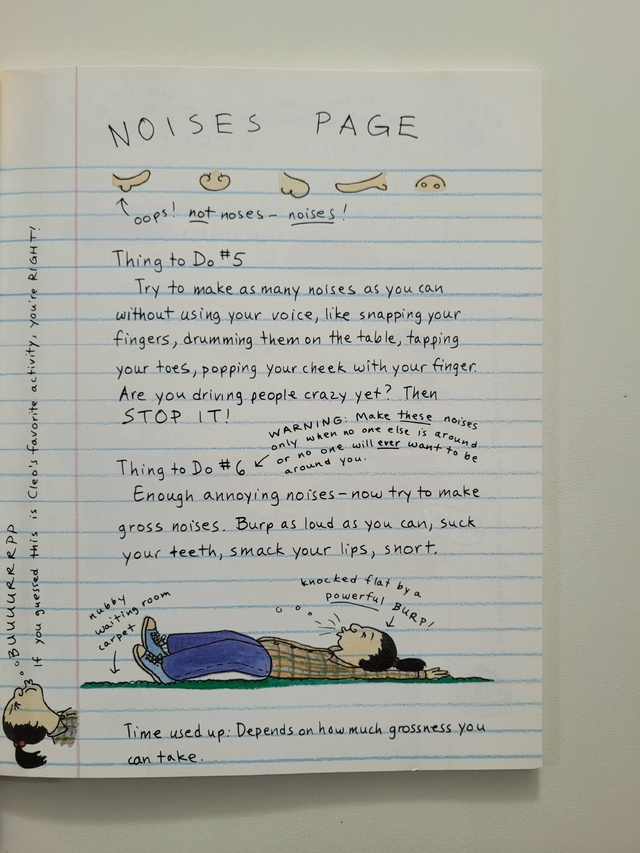 NOISES PAGE
oops! not noses - noises!
Thing to Do #5
Try to make as many noises as you can
without using your voice, like snapping your
fingers, drumming them on the table, tapping
your toes, popping your cheek with your finger.
Are you driving people crazy yet? Then
STOP IT!
WARNING: Make these noises
only when no one else is around
or no one will ever want to be
around you.
Thing to Do #6
Enough annoying noises - now try to make
gross noises. Burp as loud as you can, suck
your teeth, smack your lips, snort.
nubby
waiting room
carpet
knocked flat by a
powerful BURP!
Time used up: Depends on how much grossness you
can take.
BUUUURRRRPP
If you guessed this is Cleo's favorite activity, you're RIGHT!